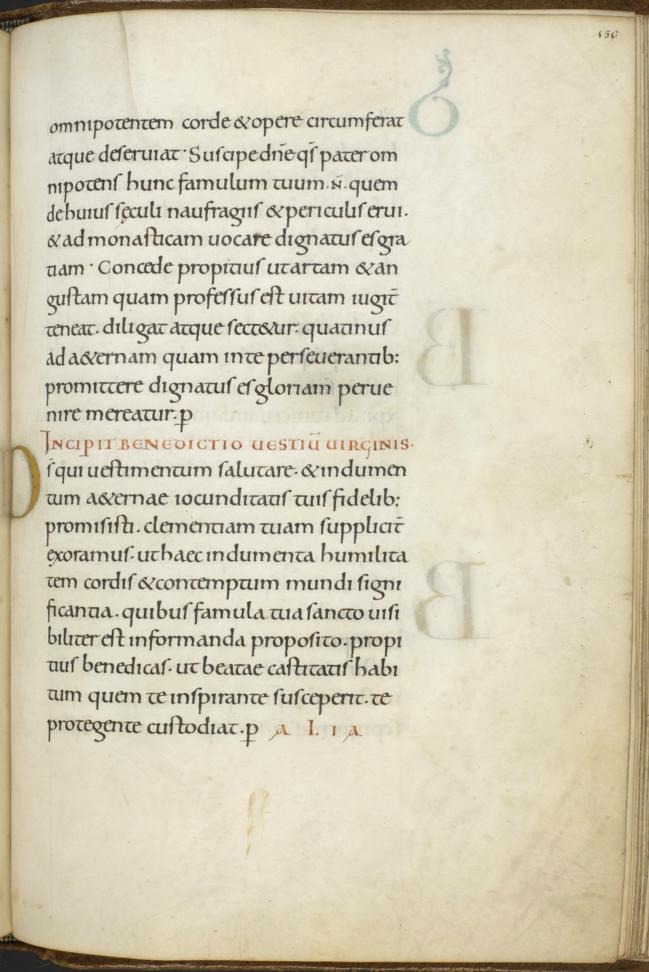 156
omnipotentem corde & opere circumferat
atque deseruiat· Suscipe dn̄e q̄s pater om
nipotens hunc famulum tuum ·N̄· quem
de huius sęculi naufragiis & periculis erui.
& ad monasticam uocare dignatus es gra
tiam· Concede propitius ut artam & an
gustam quam professus est uitam iugit̄
teneat. diligat atque sect&ur. quatinus
ad a&ernam quam in te perseuerantib:
promittere dignatus es gloriam perue
nire mereatur. p
INCIPIT BENEDICTIO UESTIŪ UIRGINIS·
D s̄ qui uestimentum salutare. & indumen
tum a&ernae iocunditatis tuis fidelib:
promisisti. clementiam tuam supplicit̄
exoramus. ut haec indumenta humilita
tem cordis & contemptum mundi signi
ficantia. quibus famula tua sancto uisi
biliter est informanda proposito. propi
tius benedicas. ut beatae castitatis habi
tum quem te inspirante susceperit. te
protegente custodiat. p ALIA